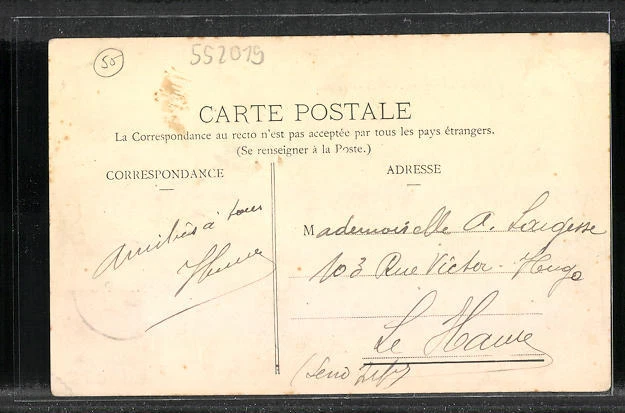 50
552019
CARTE POSTALE
La Correspondance au recto n'est pas acceptée par tous les pays étrangers.
(Se renseigner à la Poste.)
CORRESPONDANCE
ADRESSE
Amitiés à tous
Mademoiselle A.
103 Rue Victor-Hugo
Le Havre